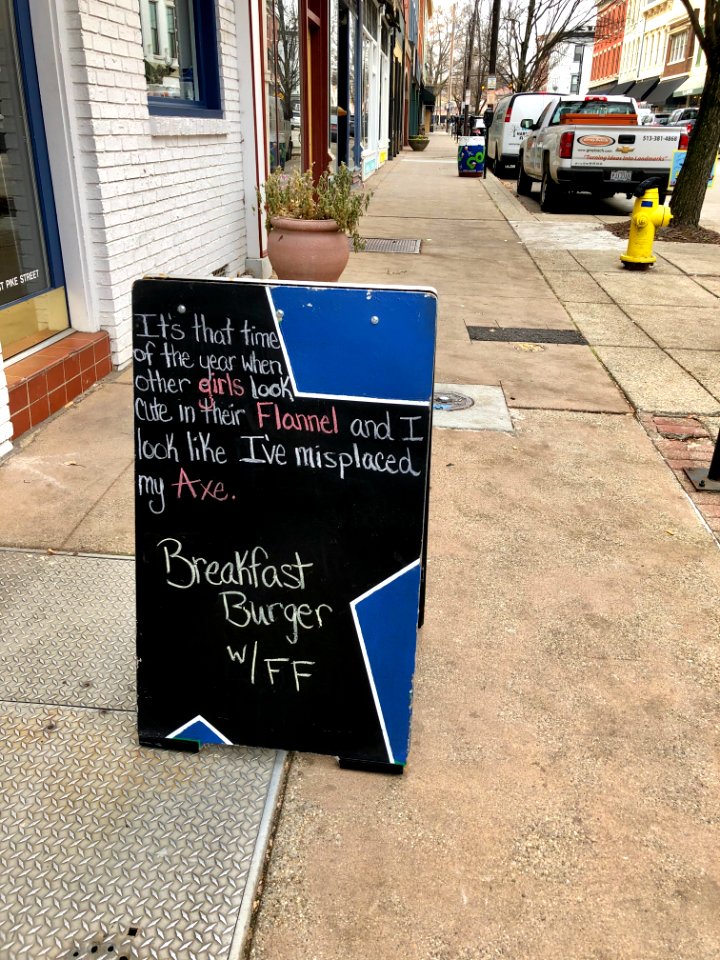 It's that time
of the year when
other girls look
cute in their Flannel and I
look like I've misplaced
my Axe.
Breakfast
Burger
w/FF
PIKE STREET
513-381-4868
"Turning Ideas Into Landmarks"
CHEVROLET